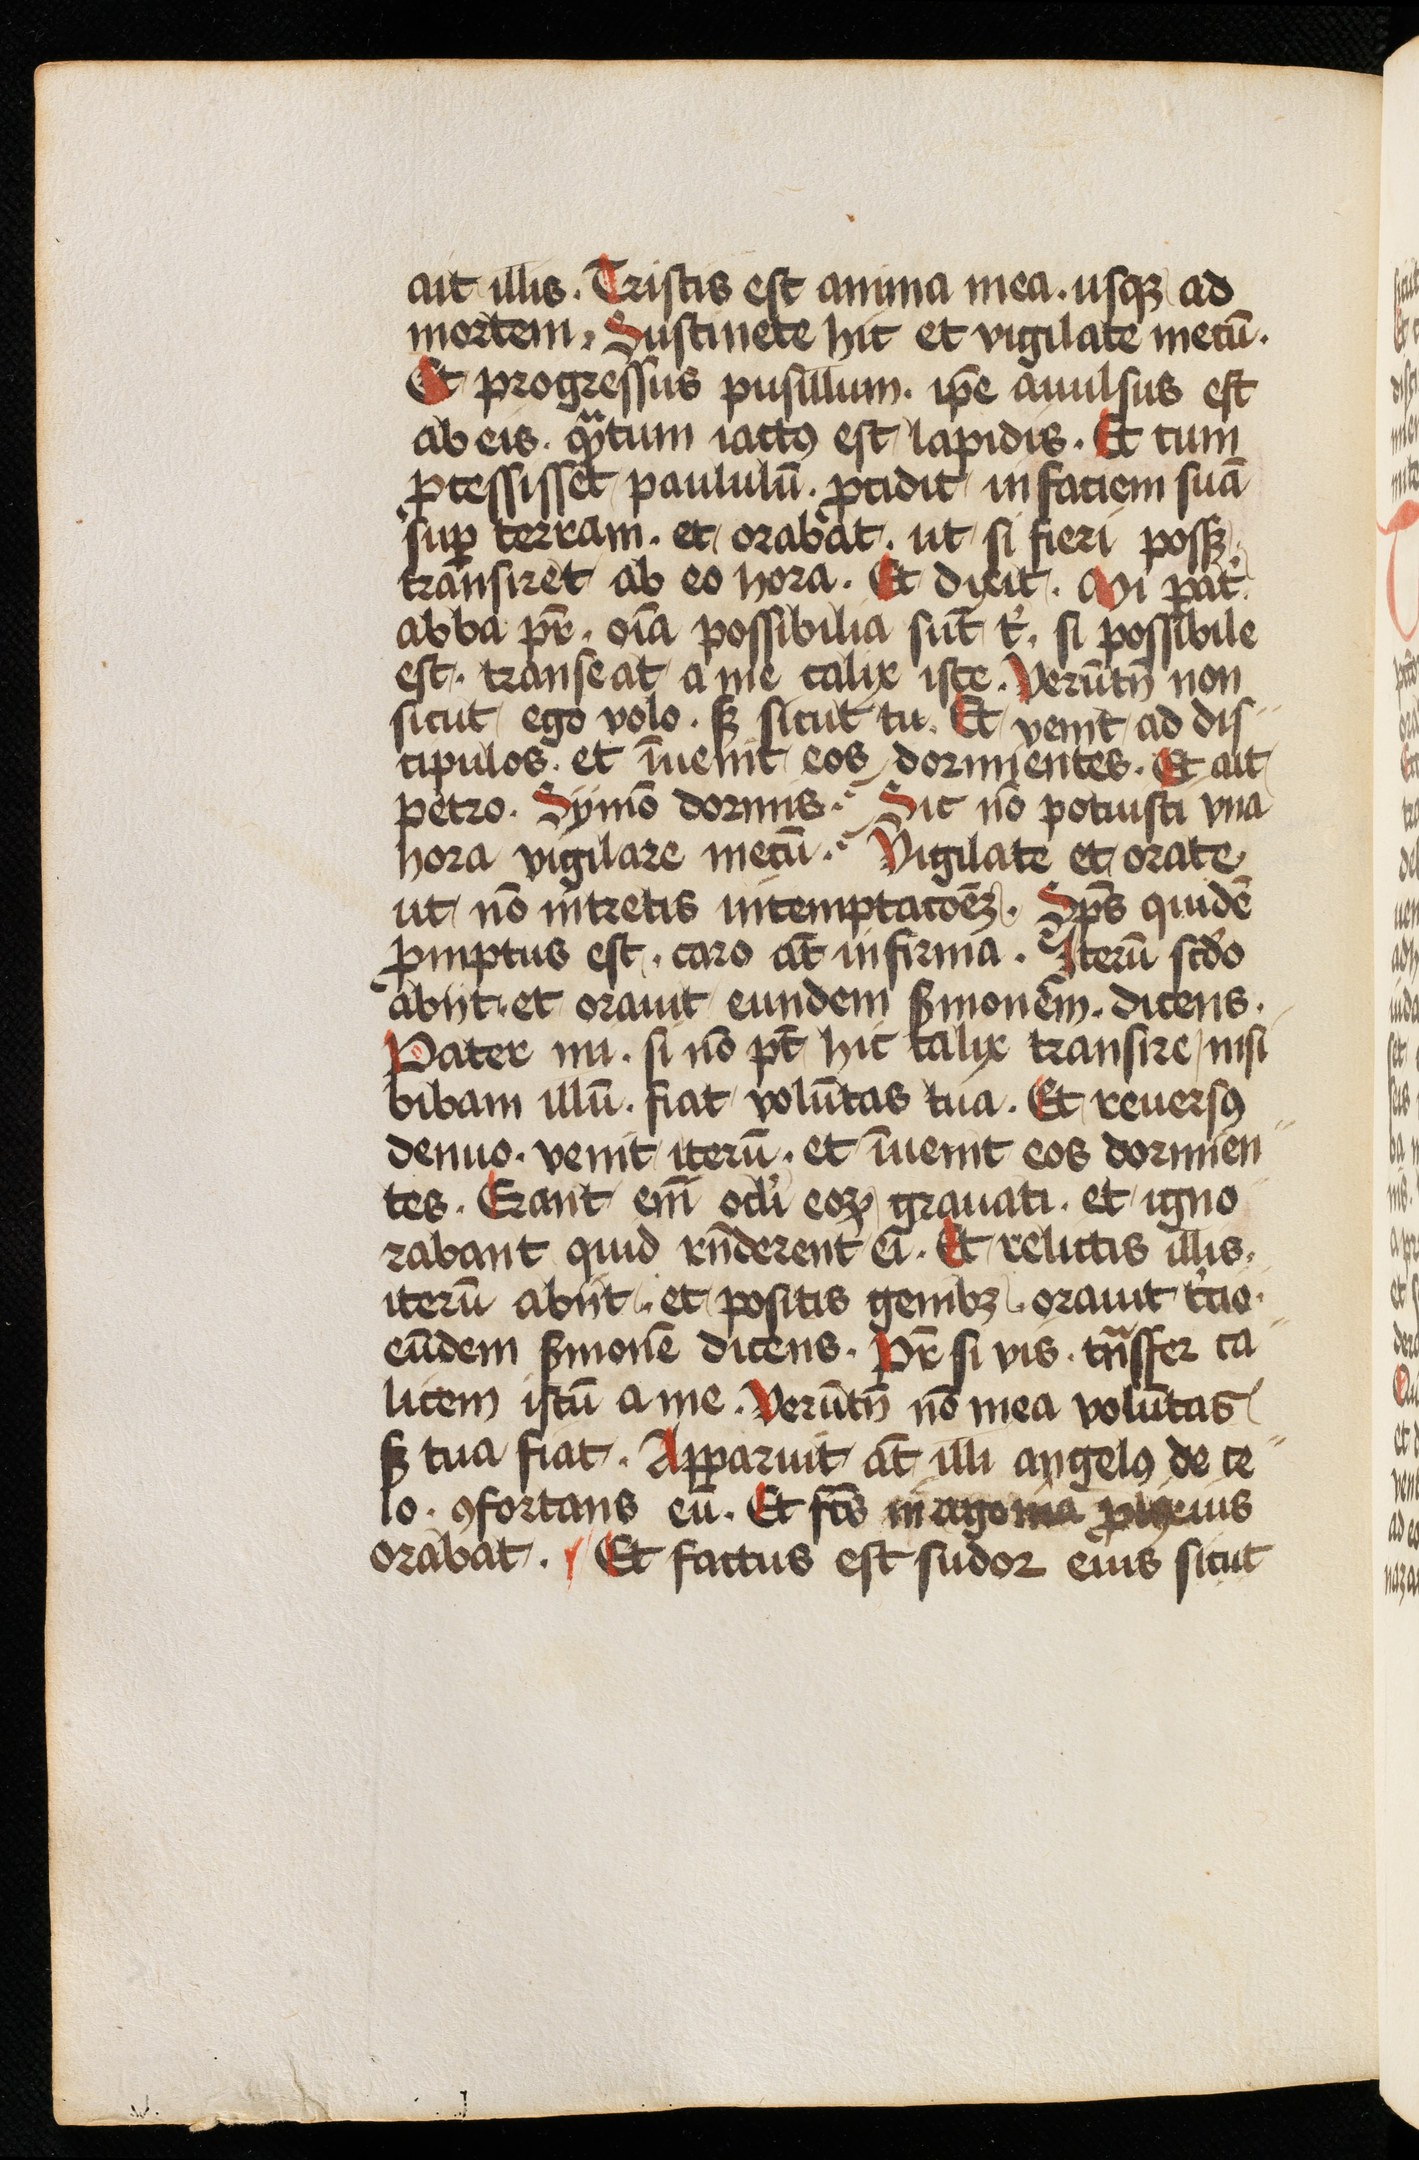 ait illis. Tristis est anima mea. usqꝫ ad
mortem. Sustinete hic et vigilate mecū.
Et progressus pusillum. ip̄e auulsus est
ab eis. qᷓtum iactꝰ est lapidis. Et cum
ꝓcessisset paululū. ꝓcidit in faciem suā
suꝑ terram. et orabat. ut si fieri possꝫ.
transiret ab eo hora. Et dixit. Mi pat̾.
abba pr̄. oīa possibilia sūt t̾. si possibile
est. transeat a me calix iste. Verūtn̄ non
sicut ego volo. sꝫ sicut tu. Et venit ad dis
cipulos. et īuenit eos dormientes. Et ait
petro. Sÿmō dormis. Sic nō potuisti vna
hora vigilare mecū. Vigilate et orate
ut nō intretis intemptacōēꝫ. Sp̄s quidē
ꝓmptus est. caro at̄ infirma. Iterū scd̾o
abijt. et orauit eundem s̾monem. dicens.
Pater mi. si nō pt̄ hic calix transire nisi
bibam illū. fiat volūtas tua. Et reuersꝰ
denuo. venit iterū. et īuenit eos dormien
tes. Erant em̄ ocl̾i eoꝝ grauati. et igno
rabant quid rn̄derent ei. Et relictis illis.
iterū abijt. et positis genibꝫ. orauit t̾cio.
eūdem s̾monē dicens. Pr̄ si vis. tᷓnsfer ca
licem istū a me. Verūtn̄ nō mea volūtas
sꝫ tua fiat. Apparuit at̄ illi angelꝰ de ce
lo. ꝯfortans eū. Et fc̄s in agonia ꝓlixius
orabat. Et factus est sudor eius sicut